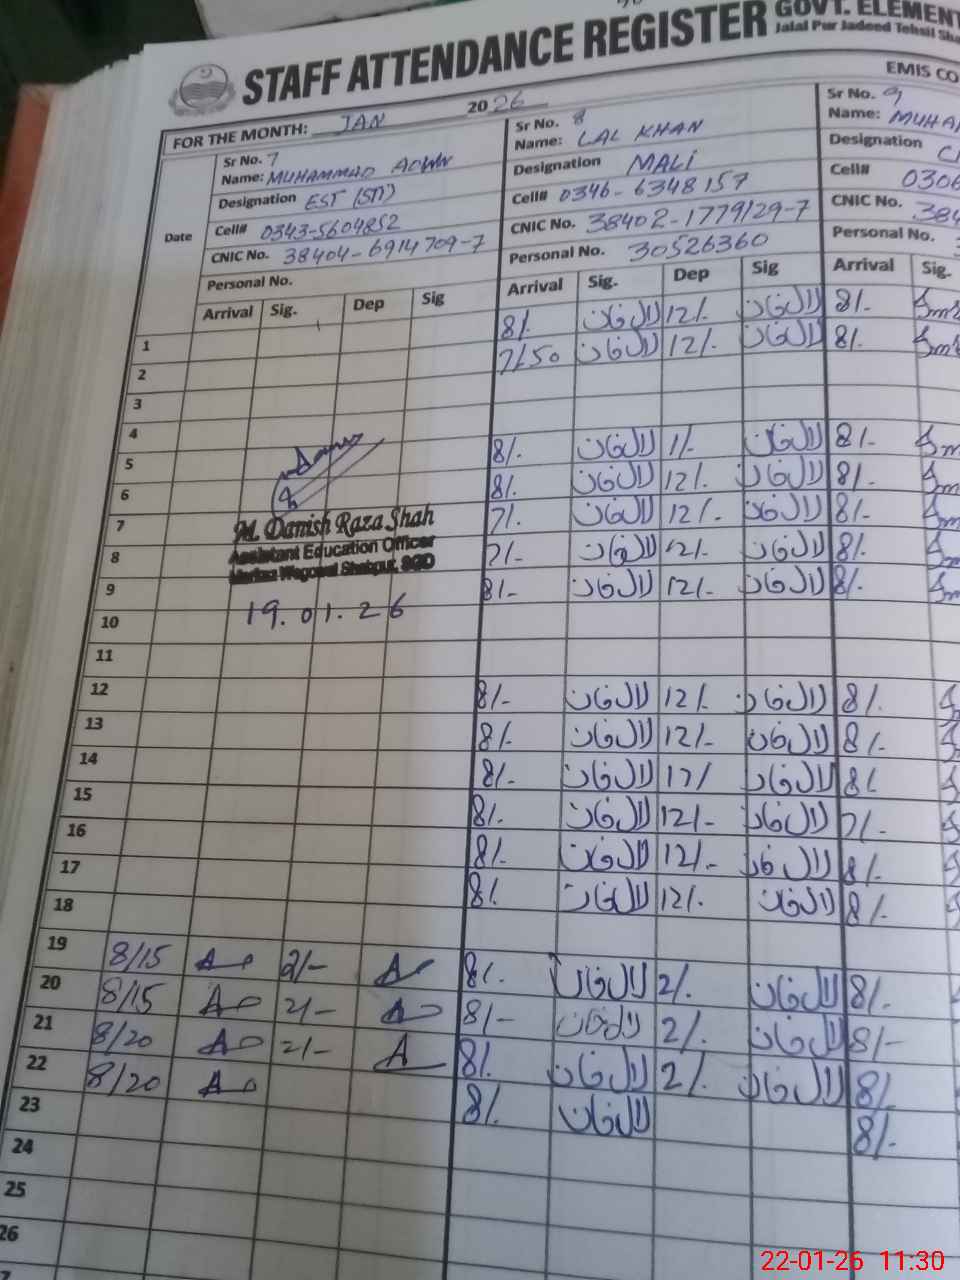 STAFF ATTENDANCE REGISTER GOVT. ELEMENT
Jalal Pur Jadeed Tehsil Sha
EMIS CO
FOR THE MONTH: JAN 2026
Date
Sr No. 7
Name: MUHAMMAD
Designation EST (STI)
Cell# 0343-5604852
CNIC No. 38404-6914709-7
Personal No.
Arrival Sig. Dep Sig
Sr No. 8
Name: LAL KHAN
Designation MALI
Cell# 0346-6348157
CNIC No. 38402-1779129-7
Personal No. 30526360
Arrival Sig. Dep Sig
Sr No. 9
Name: MUHA
Designation
Cell# 0306
CNIC No. 384
Personal No.
Arrival Sig.
1 8/. لال خان 12/. لال خان 8/.
2 7/50 لال خان 12/. لال خان 8/.
3
4
5 8/. لال خان 1/. لال خان 8/-
6 8/. لال خان 12/. لال خان 8/-
7 7/. لال خان 12/. لال خان 8/-
8 7/- لال خان 12/- لال خان 8/.
9 8/- لال خان 12/. لال خان 8/-
M. Danish Raza Shah
Assistant Education Officer
19.01.26
10
11
12 8/- لال خان 12/. لال خان 8/.
13 8/. لال خان 12/- لال خان 8/-
14 8/- لال خان 12/ لال خان 8/
15 8/. لال خان 12/- لال خان 7/-
16 8/- لال خان 12/- لال خان 8/-
17 8/. لال خان 12/. لال خان 8/-
18
19 8/15 2/- 8/. لال خان 2/. لال خان 8/.
20 8/15 2/- 8/- لال خان 2/. لال خان 8/-
21 8/20 2/- 8/. لال خان 2/. لال خان 8/.
22 8/20 8/. لال خان 8/-
23
24
25
26
22-01-26 11:30